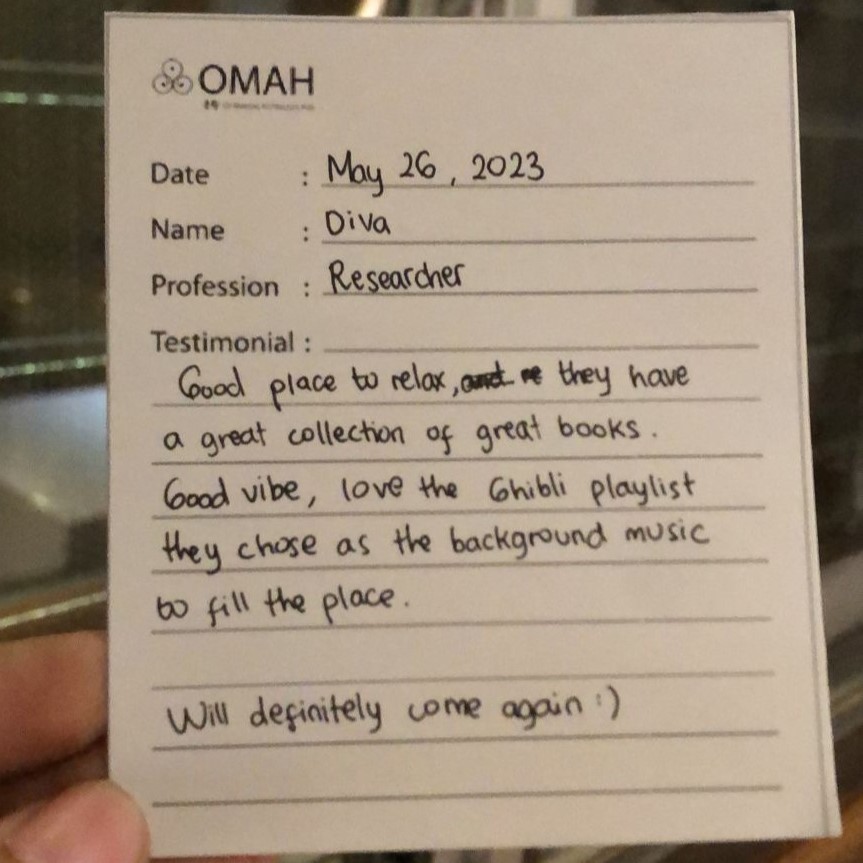 OMAH
Date : May 26, 2023
Name : Diva
Profession : Researcher
Testimonial :
Good place to relax, they have
a great collection of great books.
Good vibe, love the Ghibli playlist
they chose as the background music
to fill the place.
Will definitely come again :)